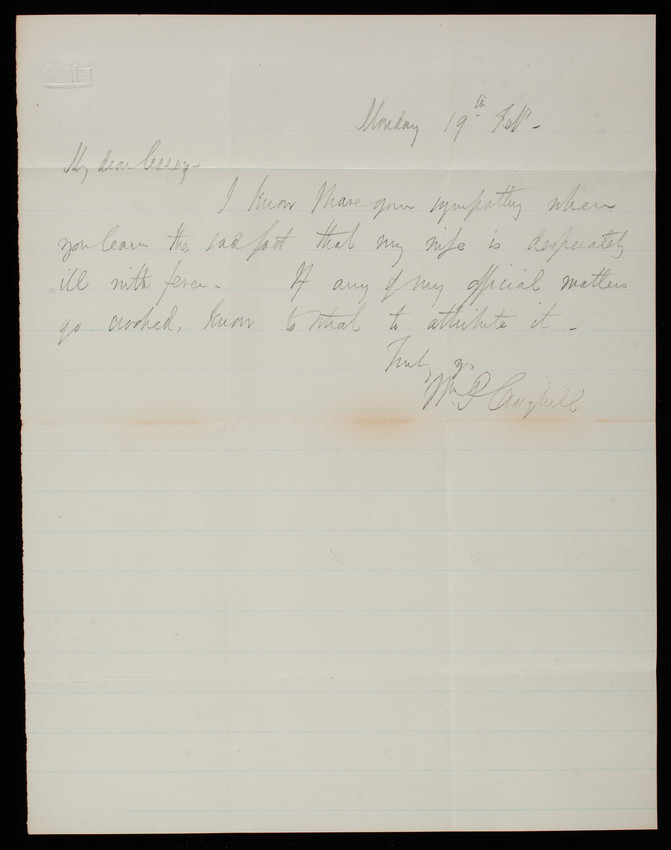 Monday 19th Feb'y -
My dear Casey -
I know I have your sympathy when
you learn the sad fact that my wife is desperately
ill with fever - If any of my official matters
go crooked, know to that to attribute it -
Truly yrs
Wm P Craighill